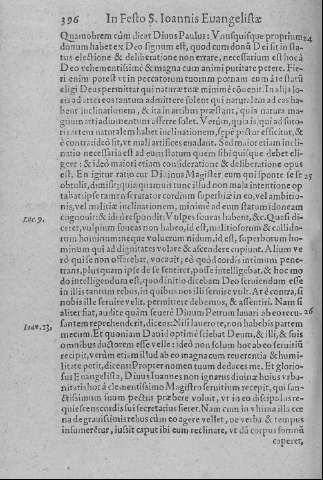 396 In Festo S. Ioannis Euangelistæ
Quamobrem cùm dicat Diuus Paulus: Vnusquisque proprium 24
donum habet ex Deo signum est, quod cum donũ Dei sit in sta
tus electione & deliberatione non errare, necessarium est hoc à
Deo vehementissimè & magna cum animi puritate petere. Fie-
ri enim potest vt in peccatorum tuorum pœnam eum à te statũ
eligi Deus permittat qui naturæ tuæ minimè cõuenit. In alijs lo-
cis ad artes eos tantum admittere solent qui naturalem ad eas ha
bent inclinationem, & ita in artibus præstant, quia natura ma-
gnum arti adiumentum afferre solet. Verùm, quia is, qui ad futu-
ris artem naturalem habet inclinationem, sępè pistor efficitur, &
è contra: ideò sit, vt mali artifices euadant. Sed maior etiam incli-
natio necessaria est ad eum statum quem sibi quisque debet eli-
gere: & ideò maiori etiam consideratione & deliberatione opus
est. En igitur ratio cur Diuinus Magister eum qui sponte se se 25
obtulit, dimisit; quia quamuis tunc illud non mala intentione op
tabat ipse tamen scrutator cordium superbiæ in eo, vel ambitio-
nis, vel malitiæ inclinationem, minimè ad eum statum idoneam
Luc. 9. cognouit: & ideò respondit: Vulpes foueas habent, &c. Quasi di-
ceret, vulpium foueas non habeo, id est, malitiosorum & callido-
rum hominum: neque volucrum nidum, id est, superborum ho-
minum qui ad dignitates volare & ascendere cupiunt. Alium ve
rò qui se non offerebat, vocauit, eò quòd cordis intimum pene-
trans, plus quam ipse de se sentiret, posse intelligebat. & hoc mo
do intelligendum est, quod initio dicebam Deo seruiendum esse
in illis tantum rebus, in quibus nos illi seruire vult. At è contra, si
nobis ille seruire velit, permittere debemus, & assentiri. Nam si
aliter fiat, audite quàm seuerè Diuum Petrum lauari ab eo recu- 26
Ioãn. 13, santem reprehenderit, dicens: Nisi lauero te, non habebis partem
mecum. Et quoniam Dauid optimè sciebat Deum, & illi, & suis
omnibus ductorem esse velle: ideò non solum hoc ab eo seruitiũ
recipit, verùm etiam illud ab eo magna cum reuerentia & humi-
litate petit, dicens: Propter nomen tuum deduces me. Et glorio-
sus Euangelista, Diuus Ioannes non ignarus diuinæ huius vrba-
nitatis hoc à clementissimo Magistro seruitium recepit, qui san-
ctissimum suum pectus præbere voluit, vt in eo discipulus re-
quiescens cordis sui secretarius fieret. Nam cum in vltima illa cœ
na de grauissimis rebus cùm eo agere vellet, ne verba & tempus
insumeretur, iussit caput ibi eum reclinare, vt dũ corpus somnũ
caperet,